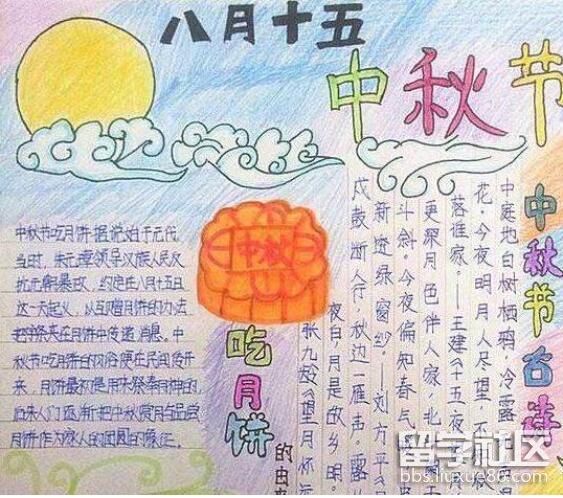 八月十五
中秋节
中秋节吃月饼据说始于元代
当时,朱元璋领导汉族人民反
抗元朝暴政,约定在八月十五日
这一天起义,以互赠月饼的办法
把字条夹在月饼中传递消息。中
秋节吃月饼的习俗便在民间传开
来,月饼最初是用来祭奉月神的
后来人们逐渐把中秋赏月与品尝
月饼作为家人的团圆的象征。
中秋
吃月饼
的由来
中秋节古诗
中庭地白树栖鸦,冷露
花。今夜明月人尽望,不
落谁家。——王建《十五夜
更深月色伴人家,北
斗斜。今夜偏知春气
新透绿窗纱。——刘方平《
戍鼓断人行,秋边一雁声。露
夜白,月是故乡明。
张九龄《望月怀
留学社区
bbs.liuxue86.com